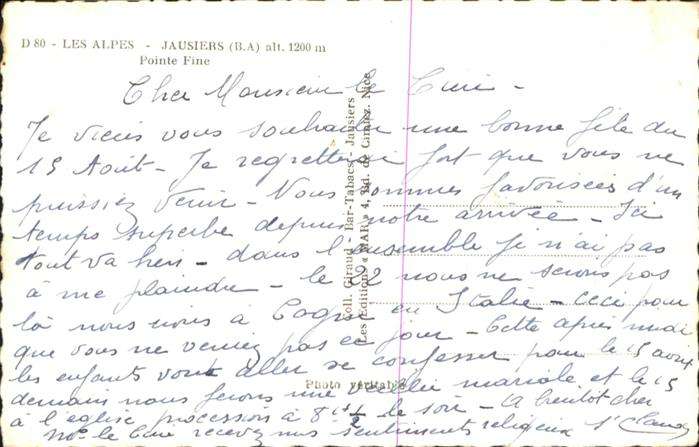 D 80 - LES ALPES - JAUSIERS (B.A) alt. 1200 m
Pointe Fine
Cher Monsieur le Curé -
Je viens vous souhaiter une bonne fête du
15 Août - Je regrette fort que vous ne
puissiez venir - Nous sommes favorisées d'un
temps superbe depuis notre arrivée - Ici
tout va bien - dans l'ensemble je n'ai pas
à me plaindre - le 22 nous ne serons pas
là nous à en Italie - Ceci pour
que vous ne veniez pas ce jour - Cette après midi
les enfants vont aller se confesser pour le 15 août
demain nous ferons une veillée mariale et le 15
à l'église procession à 8 le soir - A bientôt cher
Mr le Curé recevez nos sentiments religieux
Coll. Giraud - Bar-Tabacs - Jausiers
Les Editions « MAR » 4, Bd. de Nice
Photo véritable